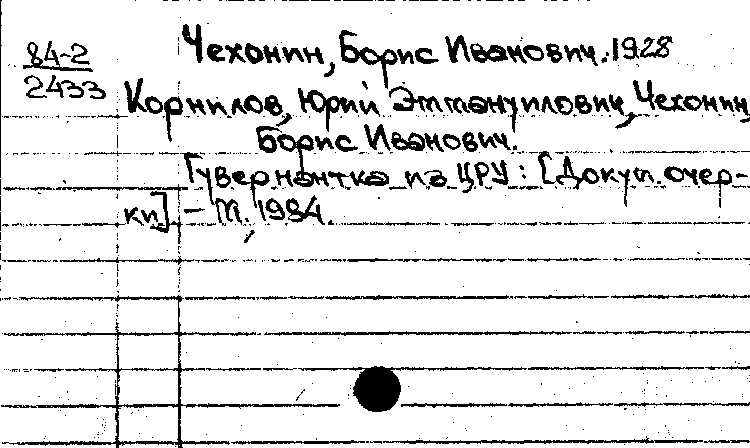 84-2
2433
Чехонин, Борис Иванович. 1928
Корнилов, Юрий Эммануилович, Чехонин,
Борис Иванович.
Гувернантка из ЦРУ: [Докум. очер-
ки]. – М., 1984.